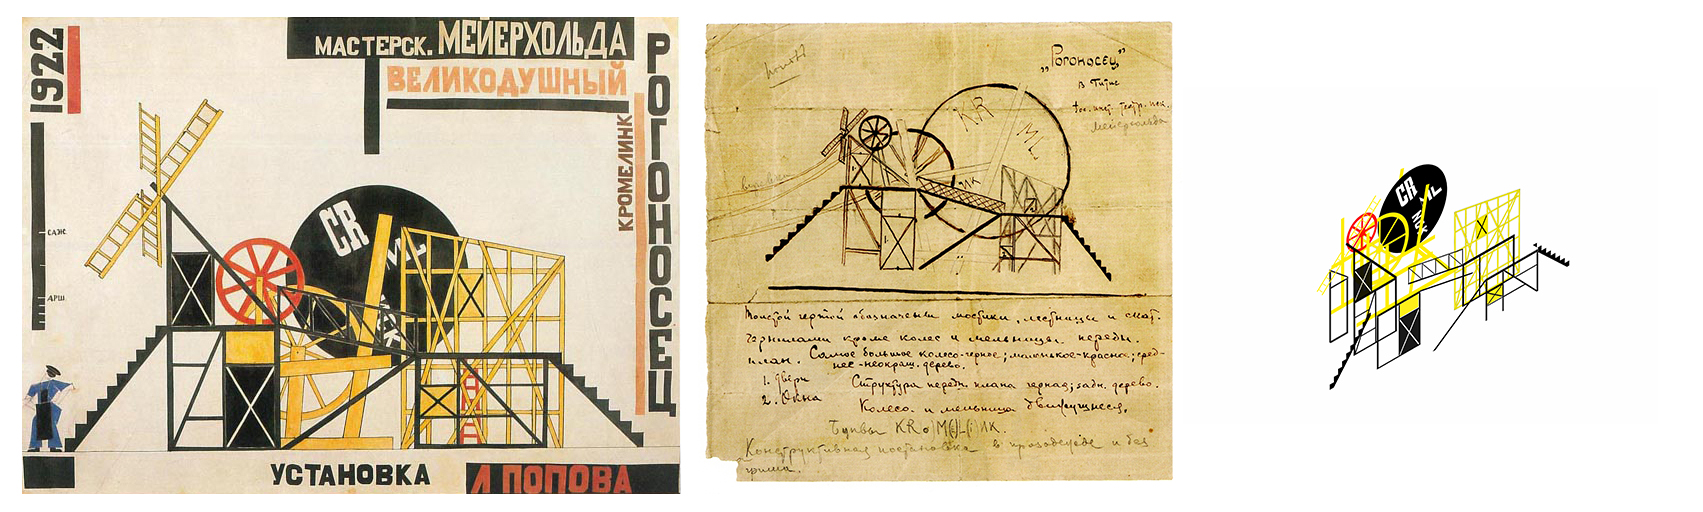 1922
МАСТЕРСК. МЕЙЕРХОЛЬДА
ВЕЛИКОДУШНЫЙ
РОГОНОСЕЦ
КРОМЕЛИНК
САЖ.
АРШ.
CR
ML
УСТАНОВКА
Л ПОПОВА
„Рогоносец"
в Гитис
Гос. инст. театр. иск.
Мейерхольда
KR
ML
ЛК
Толстой чертой обозначены мостики, лестницы и скат.
чернилами кроме колес и мельницы передн.
план. Самое большое колесо-черное; маленькое-красное; сред-
нее-неокраш. дерево.
1. Двери
Структура передн. плана черная; задн. дерево.
2. Окна
Колесо и мельница движущиеся.
Буквы KR
Конструктивная постановка в прозодежде и без
грима.
CR